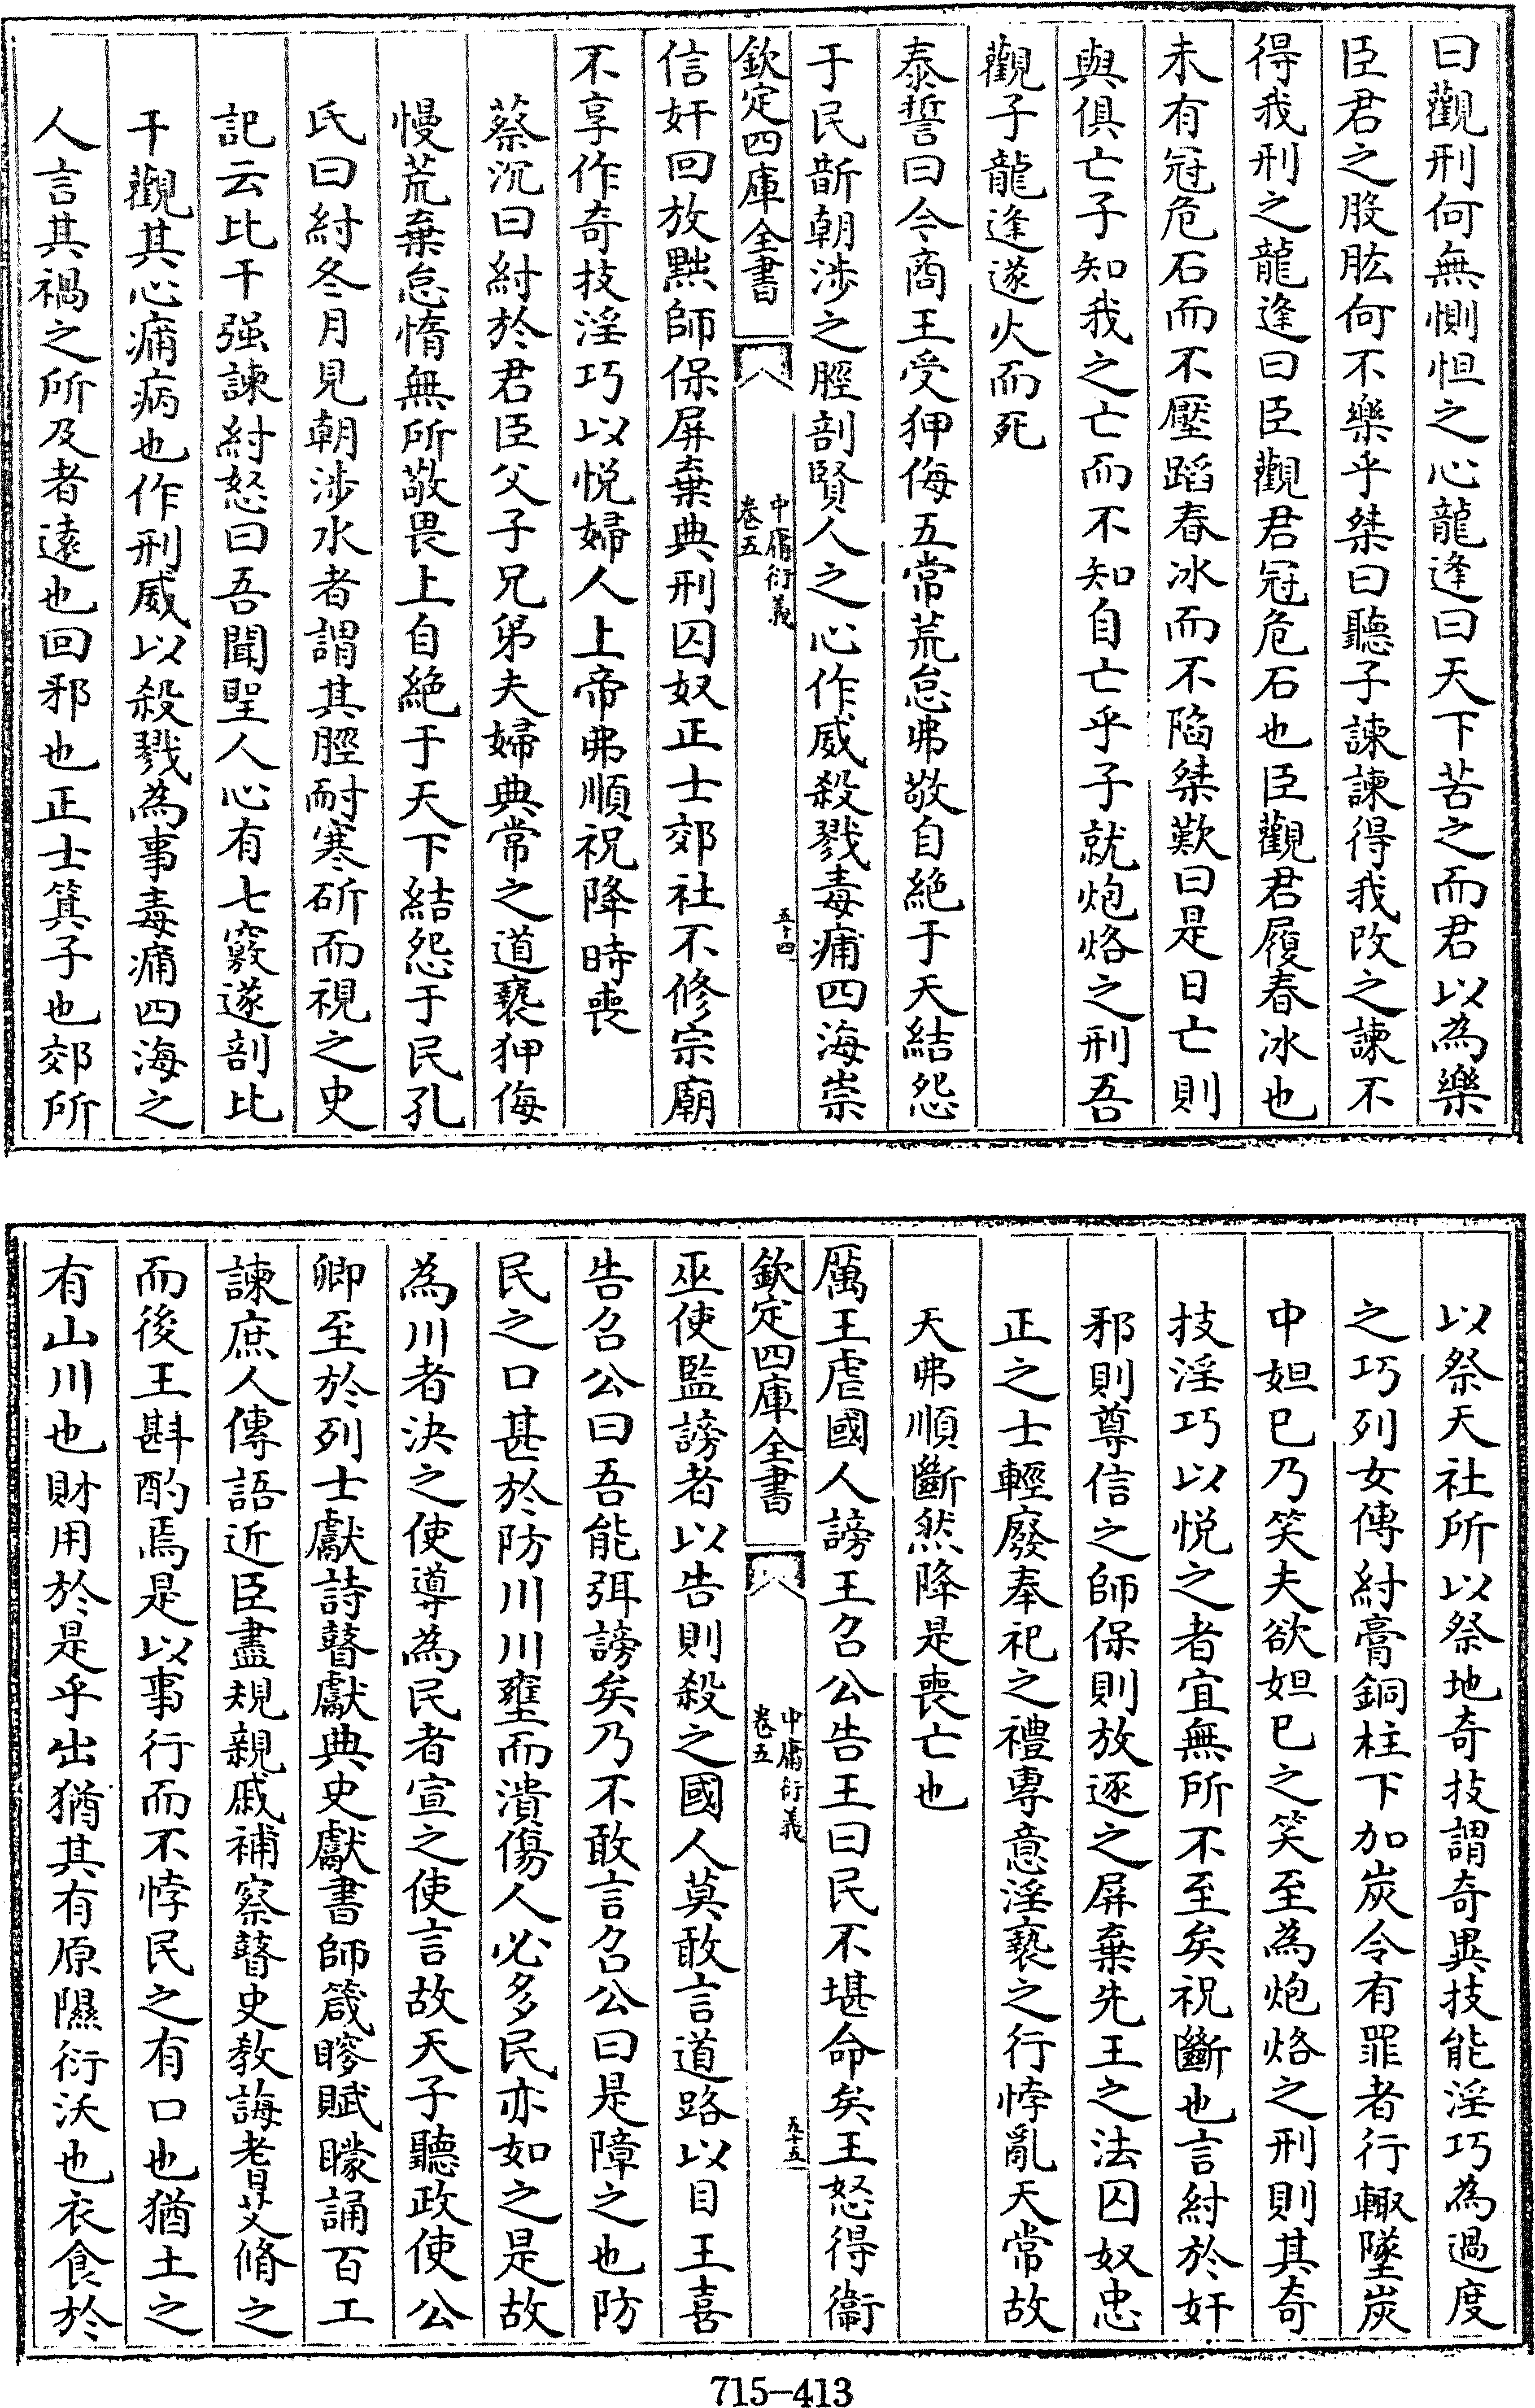 曰觀刑何無惻怛之心龍逢曰天下苦之而君以為樂
臣君之股肱何不樂乎桀曰聽子諫諫得我改之諫不
得我刑之龍逢曰臣觀君冠危石也臣觀君履春冰也
未有冠危石而不壓蹈春冰而不陷桀歎曰是日亡則
與俱亡子知我之亡而不知自亡乎子就炮烙之刑吾
觀子龍逢遂火而死
泰誓曰今商王受狎侮五常荒怠弗敬自絶于天結怨
于民斮朝涉之脛剖賢人之心作威殺戮毒痡四海崇
欽定四庫全書
中庸衍義
卷五
五十四
信奸回放黜師保屏棄典刑囚奴正士郊社不修宗廟
不享作奇技淫巧以悦婦人上帝弗順祝降時喪
蔡沉曰紂於君臣父子兄弟夫婦典常之道䙝狎侮
慢荒棄怠惰無所敬畏上自絶于天下結怨于民孔
氏曰紂冬月見朝涉水者謂其脛耐寒斫而視之史
記云比干强諫紂怒曰吾聞聖人心有七竅遂剖比
干觀其心痡病也作刑威以殺戮為事毒痡四海之
人言其禍之所及者遠也回邪也正士箕子也郊所
以祭天社所以祭地奇技謂奇異技能淫巧為過度
之巧列女傳紂膏銅柱下加炭令有罪者行輙墜炭
中妲已乃笑夫欲妲已之笑至為炮烙之刑則其奇
技淫巧以悦之者宜無所不至矣祝斷也言紂於奸
邪則尊信之師保則放逐之屏棄先王之法囚奴忠
正之士輕廢奉祀之禮專意淫䙝之行悖亂天常故
天弗順斷然降是喪亡也
厲王虐國人謗王召公告王曰民不堪命矣王怒得衞
欽定四庫全書
中庸衍義
卷五
五十五
巫使監謗者以告則殺之國人莫敢言道路以目王喜
告召公曰吾能弭謗矣乃不敢言召公曰是障之也防
民之口甚於防川川壅而潰傷人必多民亦如之是故
為川者決之使導為民者宣之使言故天子聽政使公
卿至於列士獻詩瞽獻典史獻書師箴瞍賦矇誦百工
諫庶人傳語近臣盡規親戚補察瞽史教誨耆艾脩之
而後王斟酌焉是以事行而不悖民之有口也猶土之
有山川也財用於是乎出猶其有原隰衍沃也衣食於
715-413